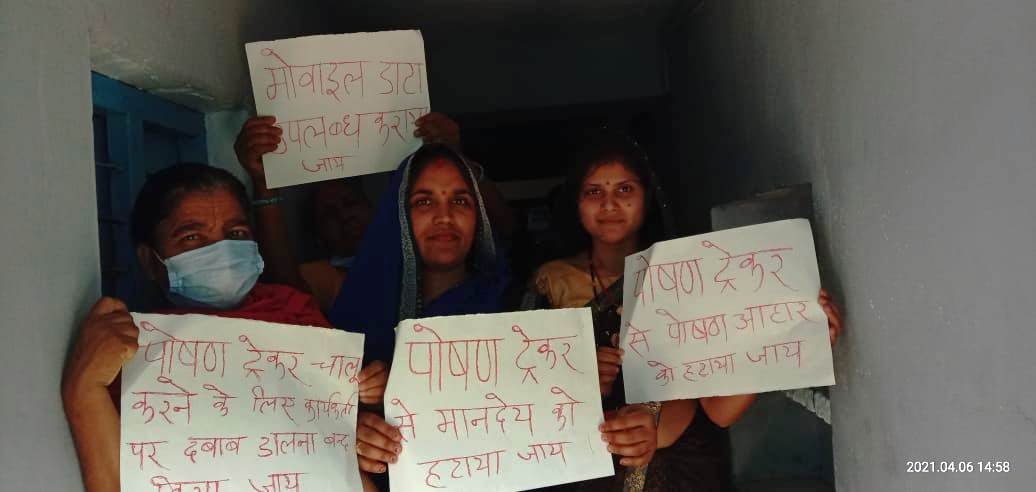 मोवाइल डाटा
उपलब्ध कराया
जाय
पोषण ट्रेकर चालू
करने के लिए कार्यकर्ता
पर दबाब डालना बन्द
किया जाय
पोषण ट्रेकर
से मानदेय को
हटाया जाय
पोषण ट्रेकर
से पोषण आहार
को हटाया जाय
2021.04.06 14:58